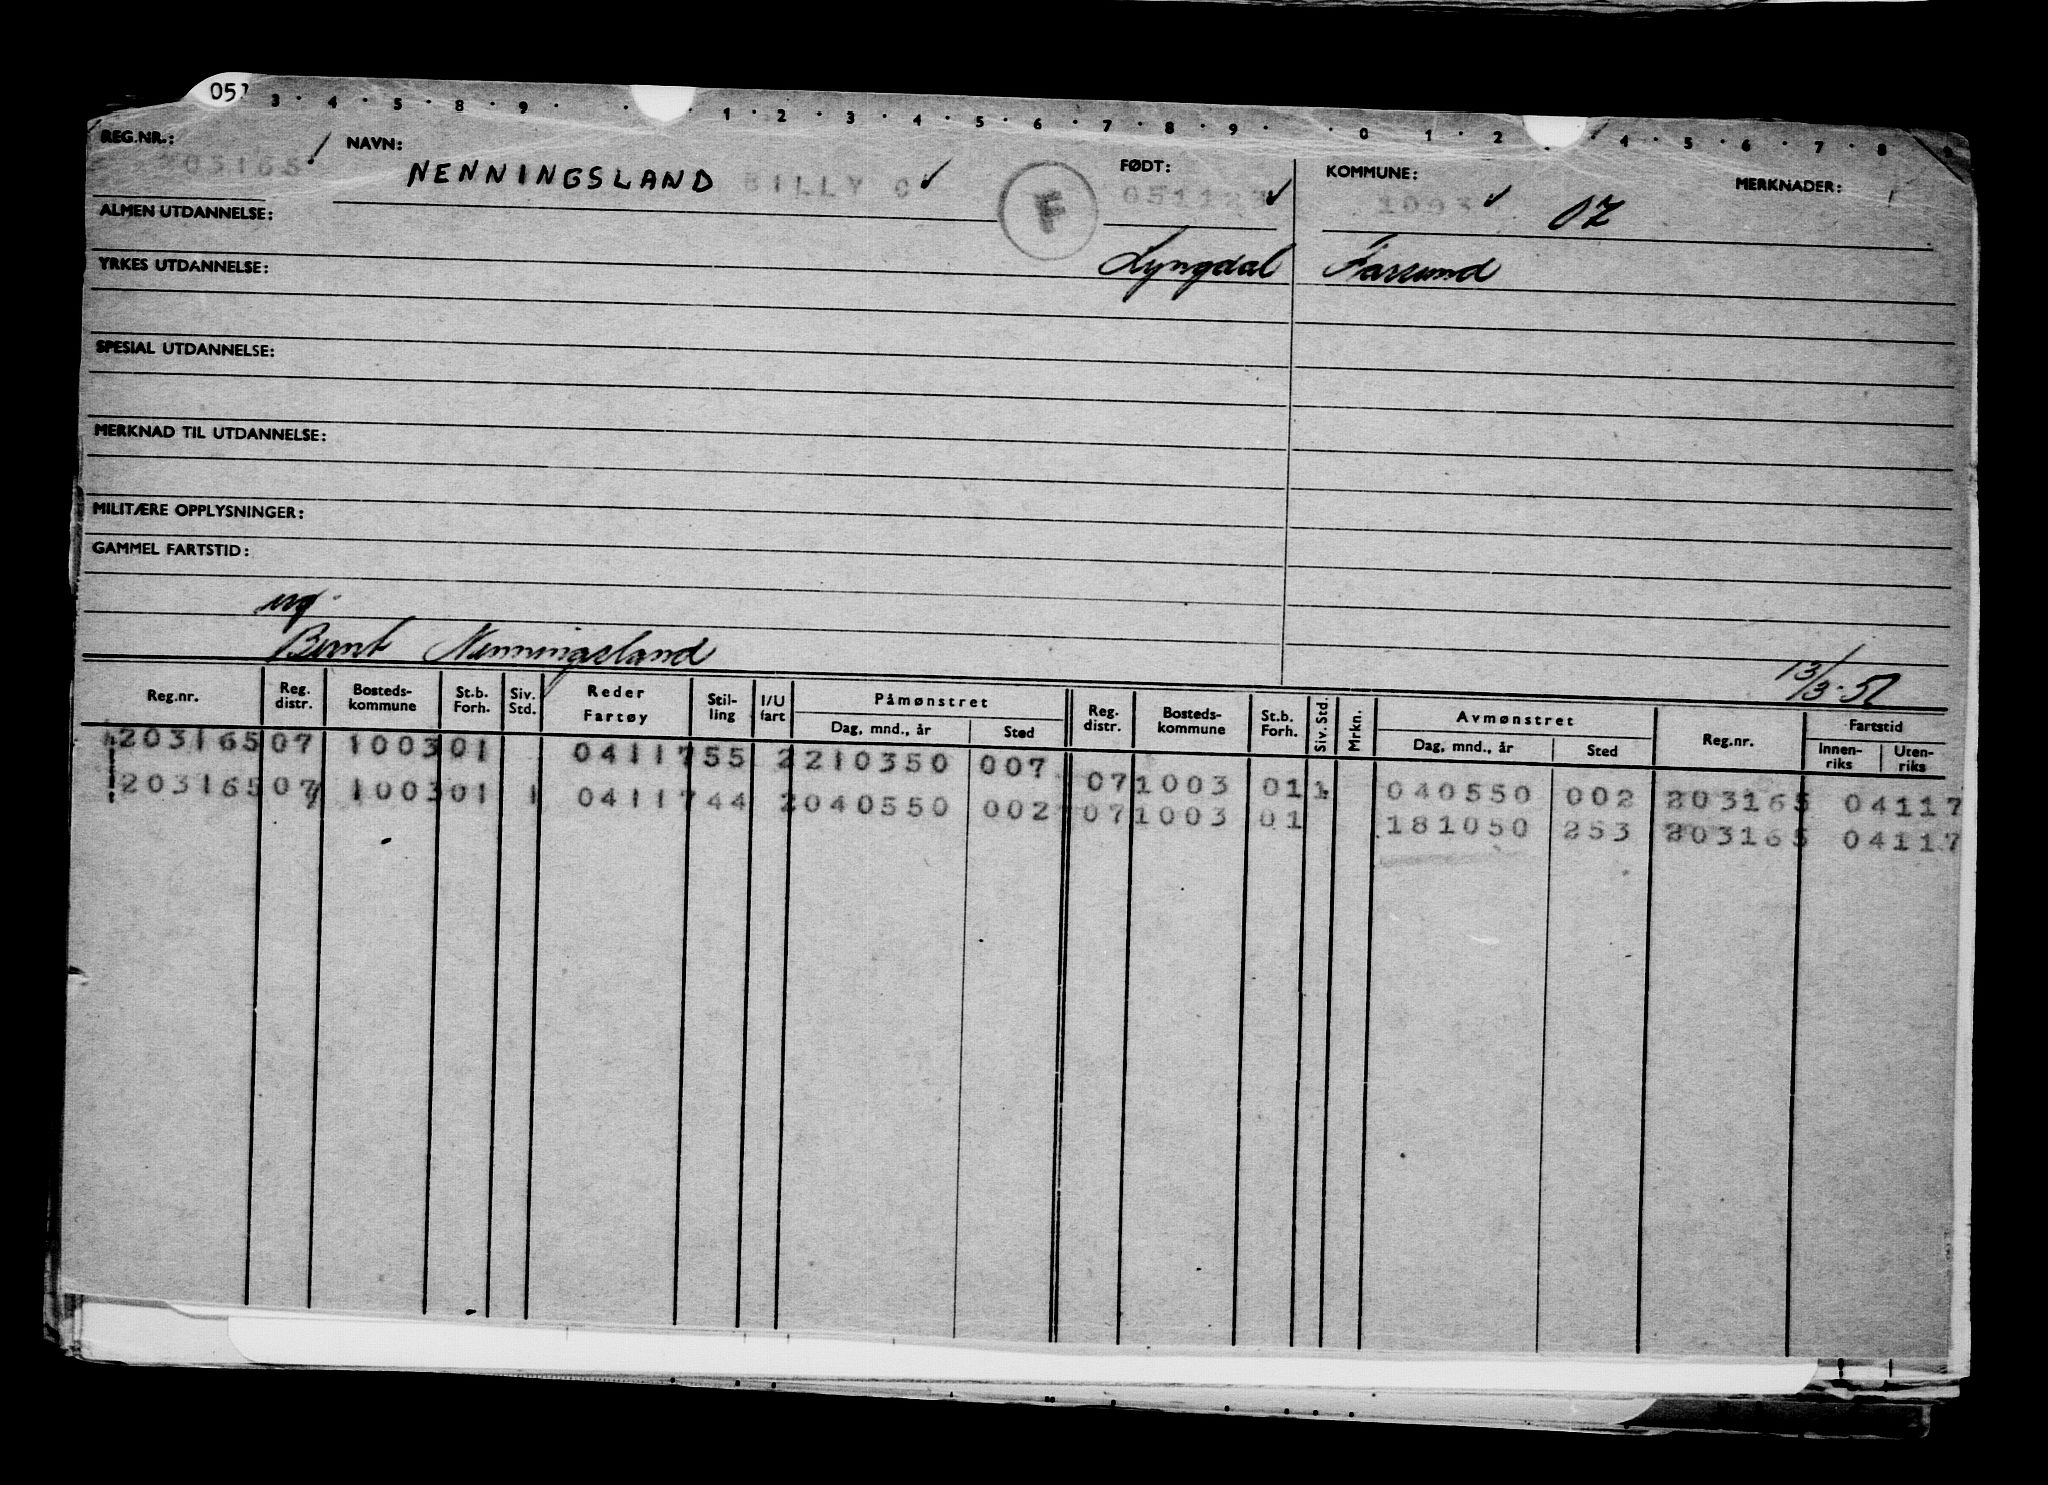 051
3 · 4 · 5 · 8 · 9 · · 1 · 2 · 3 · 4 · 5 · 6 · 7 · 8 · 9 · · 0 · 1 · 2 · 4 · 5 · 6 · 7 · 8
REG.NR.: NAVN: FØDT: KOMMUNE: MERKNADER:
203165 NENNINGSLAND BILLY O F 051123 1003 07
ALMEN UTDANNELSE:
Lyngdal Farsund
YRKES UTDANNELSE:
SPESIAL UTDANNELSE:
MERKNAD TIL UTDANNELSE:
MILITÆRE OPPLYSNINGER:
GAMMEL FARTSTID:
Bernt Nenningsland 13/3-52
Reg.nr. Reg. distr. Bosteds-kommune St.b. Forh. Siv. Std. Reder Fartøy Stil-ling I/U fart Påmønstret Dag, mnd., år Sted Reg. distr. Bosteds-kommune St.b. Forh. Siv. Std. Mrkn. Avmønstret Dag, mnd., år Sted Reg.nr. Fartstid Innen-riks Uten-riks
203165 07 1003 01 04117 55 2 210350 007 07 1003 01 1 040550 002 203165 04117
203165 07 1003 01 1 04117 44 2 040550 002 07 1003 01 181050 253 203165 04117